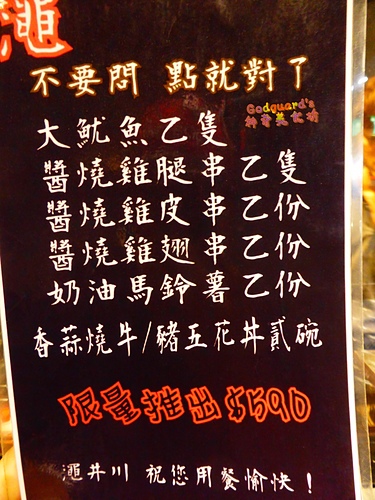 繩
不要問 點就對了
Godguard's
大魷魚乙隻
醬燒雞腿串乙隻
醬燒雞皮串乙份
醬燒雞翅串乙份
奶油馬鈴薯乙份
香蒜燒牛/豬五花丼貳碗
限量推出$590
繩井川 祝您用餐愉快！